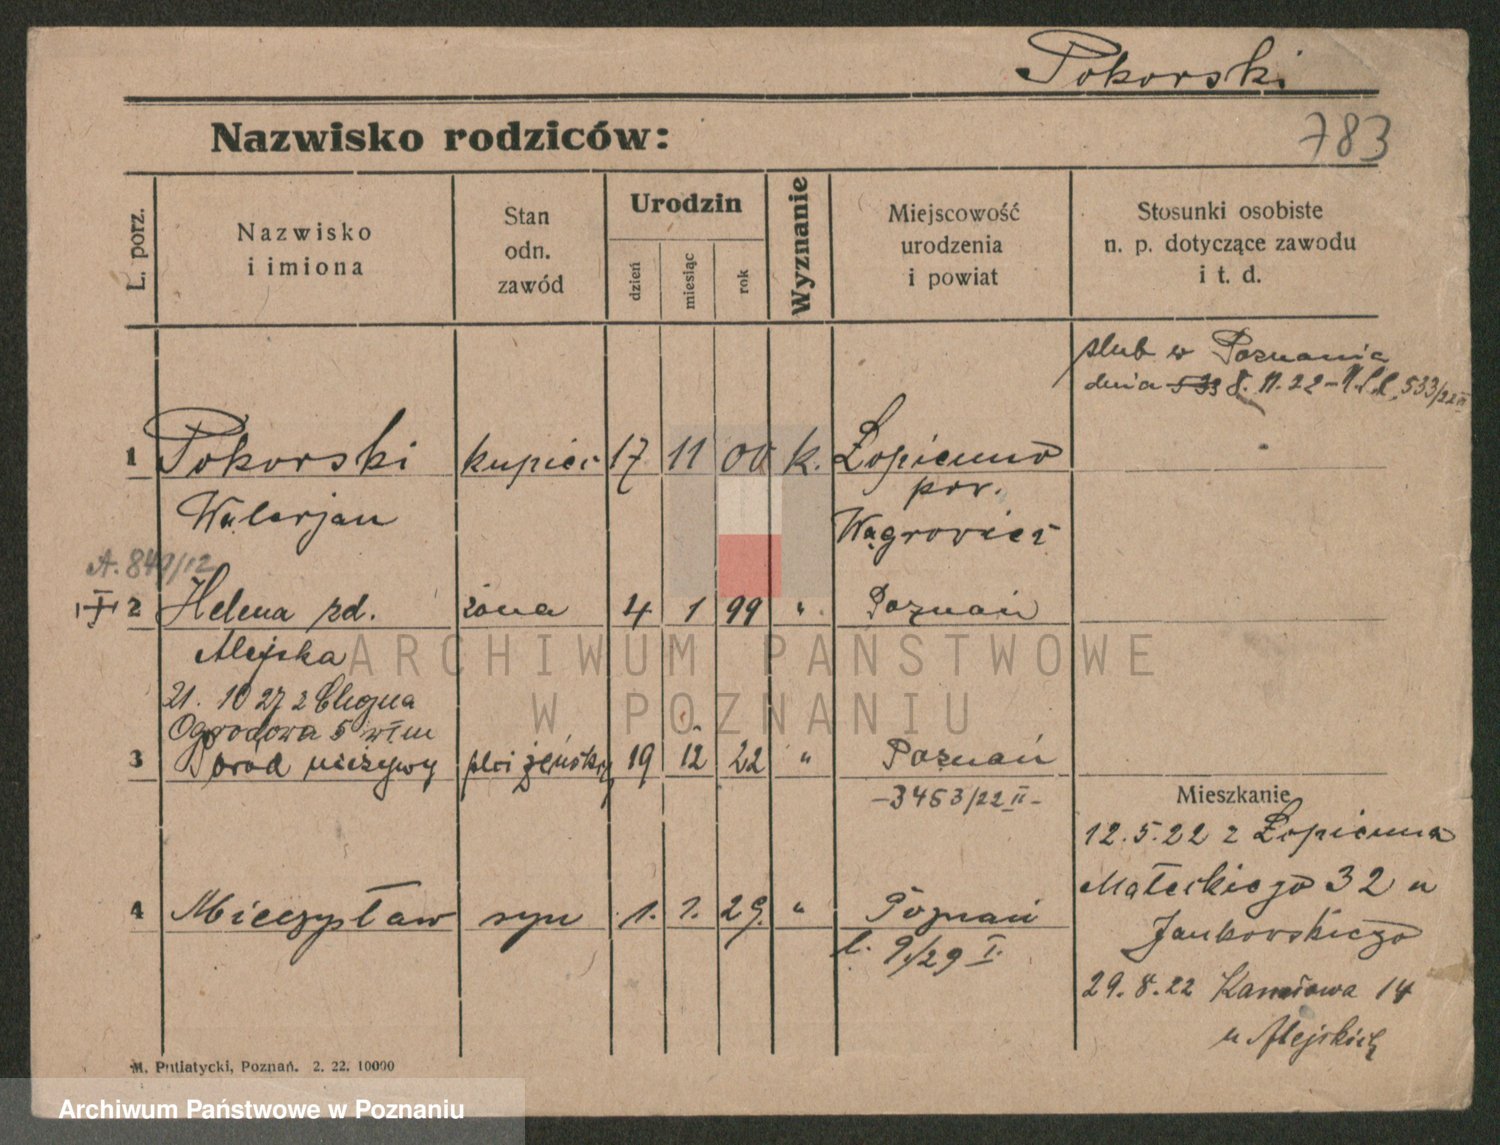 Pokorski
783
Nazwisko rodziców:
L. porz.
Nazwisko
i imiona
Stan
odn.
zawód
Urodzin
dzień
miesiąc
rok
Wyznanie
Miejscowość
urodzenia
i powiat
Stosunki osobiste
n. p. dotyczące zawodu
i t. d.
ślub w Poznaniu
dnia 8. 11. 22 533/22 II
1 Pokorski kupiec 17 11 00 k. Łopienno
Walerjan
pow.
Wągrowiec
A. 849/12
2 Helena zd. żona 4 1 99 " Poznań
Alejska
21. 10 27 z
Ogrodowa 5 w I m
3 Poród nieżywy płci żeńskiej 19 12 22 " Poznań
-3453/22 II-
4 Mieczysław syn 1. 1. 29. " Poznań
l. 9/29 I.
Mieszkanie
12. 5. 22 z Łopienna
Małeckiego 32 u
Jankowskiego
29. 8. 22 14
u Alejskich
M. Putiatycki, Poznań. 2. 22. 10000
ARCHIWUM PAŃSTWOWE
W POZNANIU
Archiwum Państwowe w Poznaniu